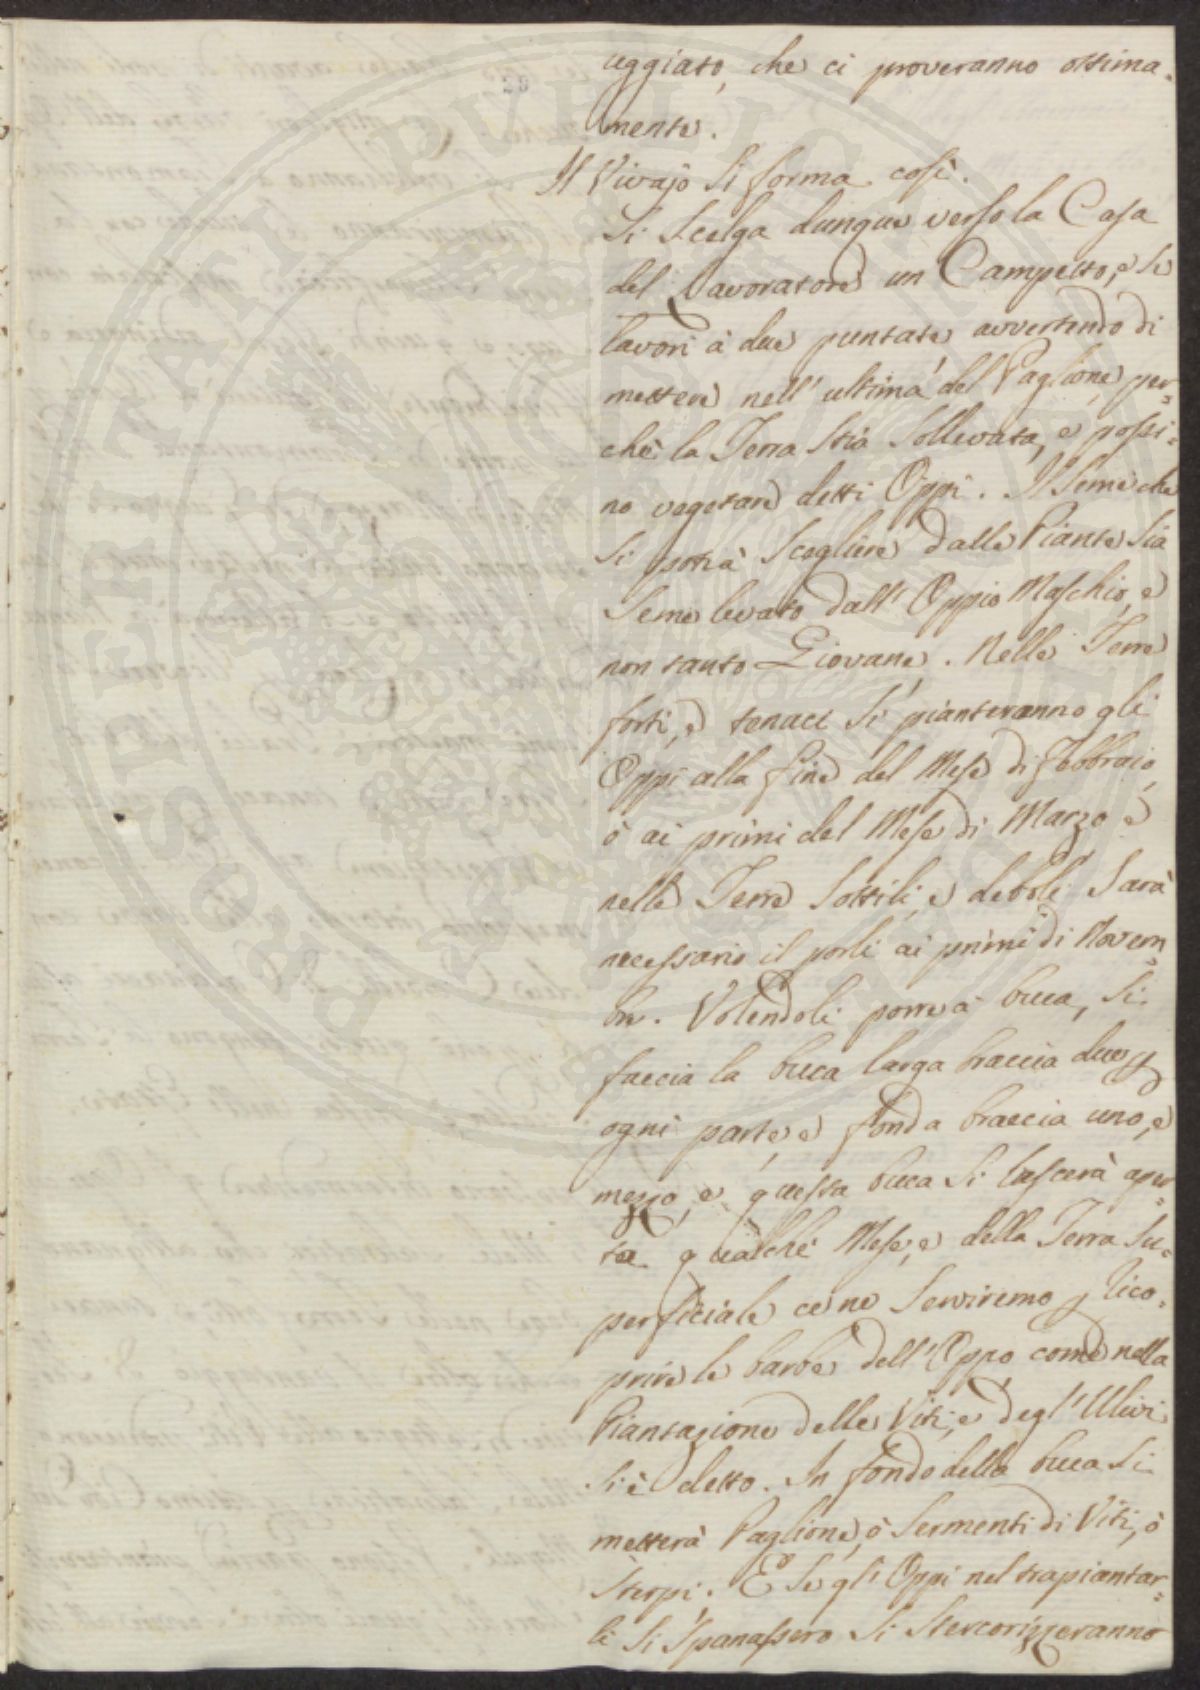 uggiato, che ci proveranno ottima=
mente.
Il Vivajo si forma così.
Si Scelga dunque verso la Casa
del Lavoratore un Campetto, e Si
lavori à due puntate avvertendo di
mettere nell' ultima del Paglione per=
chè la Terra Stia Sollevata, e possi=
no vegetare detti Oppi. Il Seme che
Si potrà Scegliere dalle Piante Sia
Seme levato dall' Oppio Maschio, e
non tanto Giovane. Nelle Terre
forti, e tenaci Si pianteranno gli
Oppi alla fine del Mese di Febbraio,
ò ai primi del Mese di Marzo e
nelle Terre Sottili, e deboli Sarà
necessario il porli ai primi di Novem=
bre. Volendoli porre à buca, Si
faccia la buca larga braccia due p
ogni parte, e fonda braccia uno, e
mezzo, e questa buca Si lascerà aper=
ta qualche Mese, e della Terra Su=
perficiale ce ne Serviremo p rico=
prire le barbe dell' Oppo, come nella
Piantazione delle Viti, e degl' Ulivi
Si è detto. In fondo della buca Si
metterà Paglione, ò Sermenti di Viti, ò
Sterpi. E Se gli Oppi nel trapiantar=
li Si Spanassero Si Stercorizzeranno
29
PROSPERITATI PUBLICAE